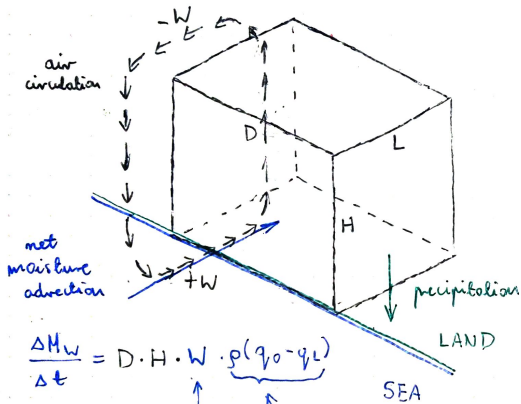 -W
air
circulation
D
L
H
net
moisture
advection
+W
precipitation
LAND
SEA
ΔM_W / Δt = D·H·W·ρ(q_0-q_L)